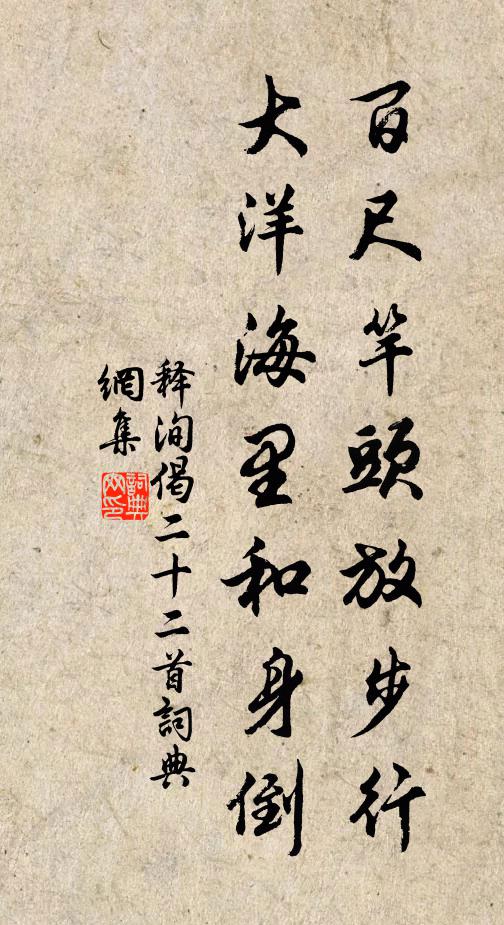 百尺竿頭放步行
大洋海里和身倒
释洵偈二十二首詞典
網集
詞典
网印